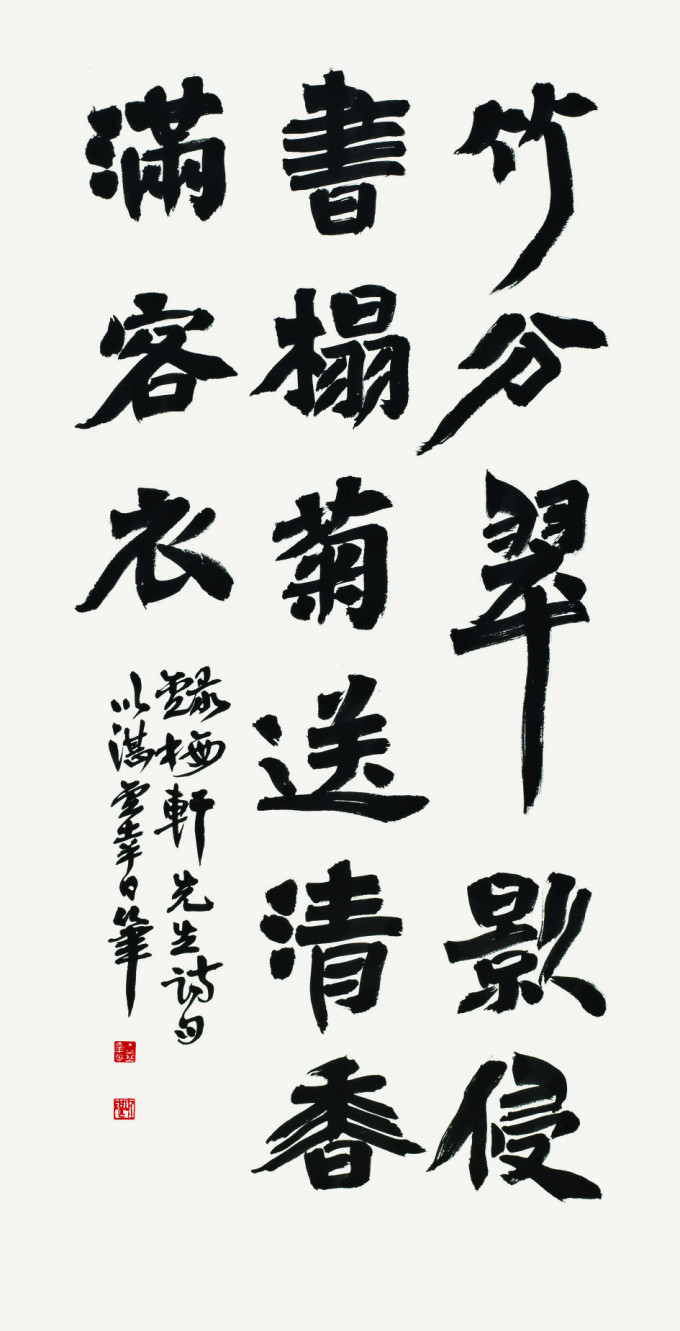 竹分翠影侵
書榻菊送清香
滿客衣
錄梅軒先生詩句
以湛
日筆